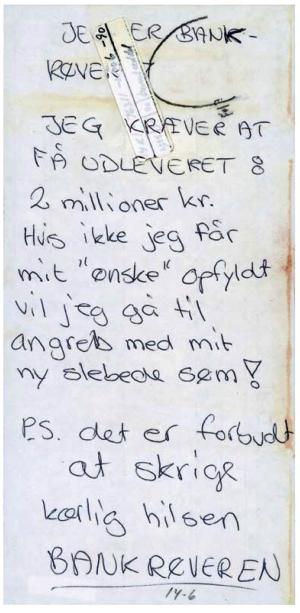 JEG ER BANK-
RØVER
JEG KRÆVER AT
FÅ UDLEVERET 8
2 millioner kr.
Hvis ikke jeg får
mit "ønske" opfyldt
vil jeg gå til
angreb med mit
ny slebede søm!
P.S. det er forbudt
at skrige
kærlig hilsen
BANKRØVEREN
14-6